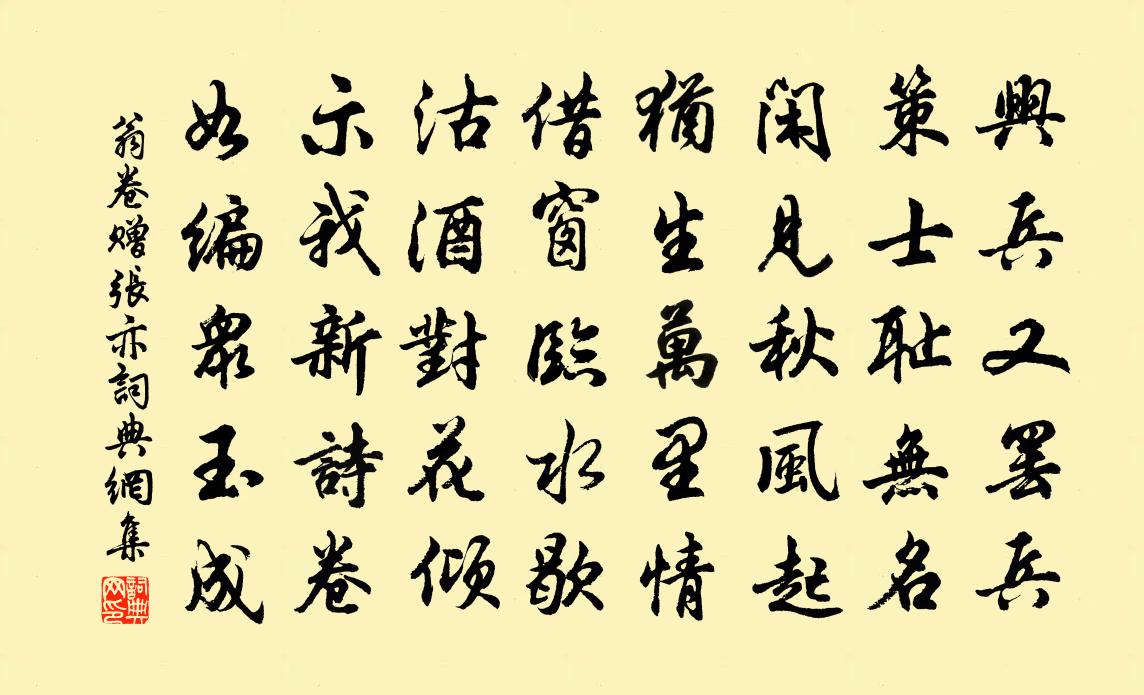 興兵又罢兵
策士耻無名
閑見秋風起
猶生萬里情
借窗臨水歇
沽酒對花傾
示我新詩卷
如編衆玉成
翁卷赠張亦詞典網集
詞典网印